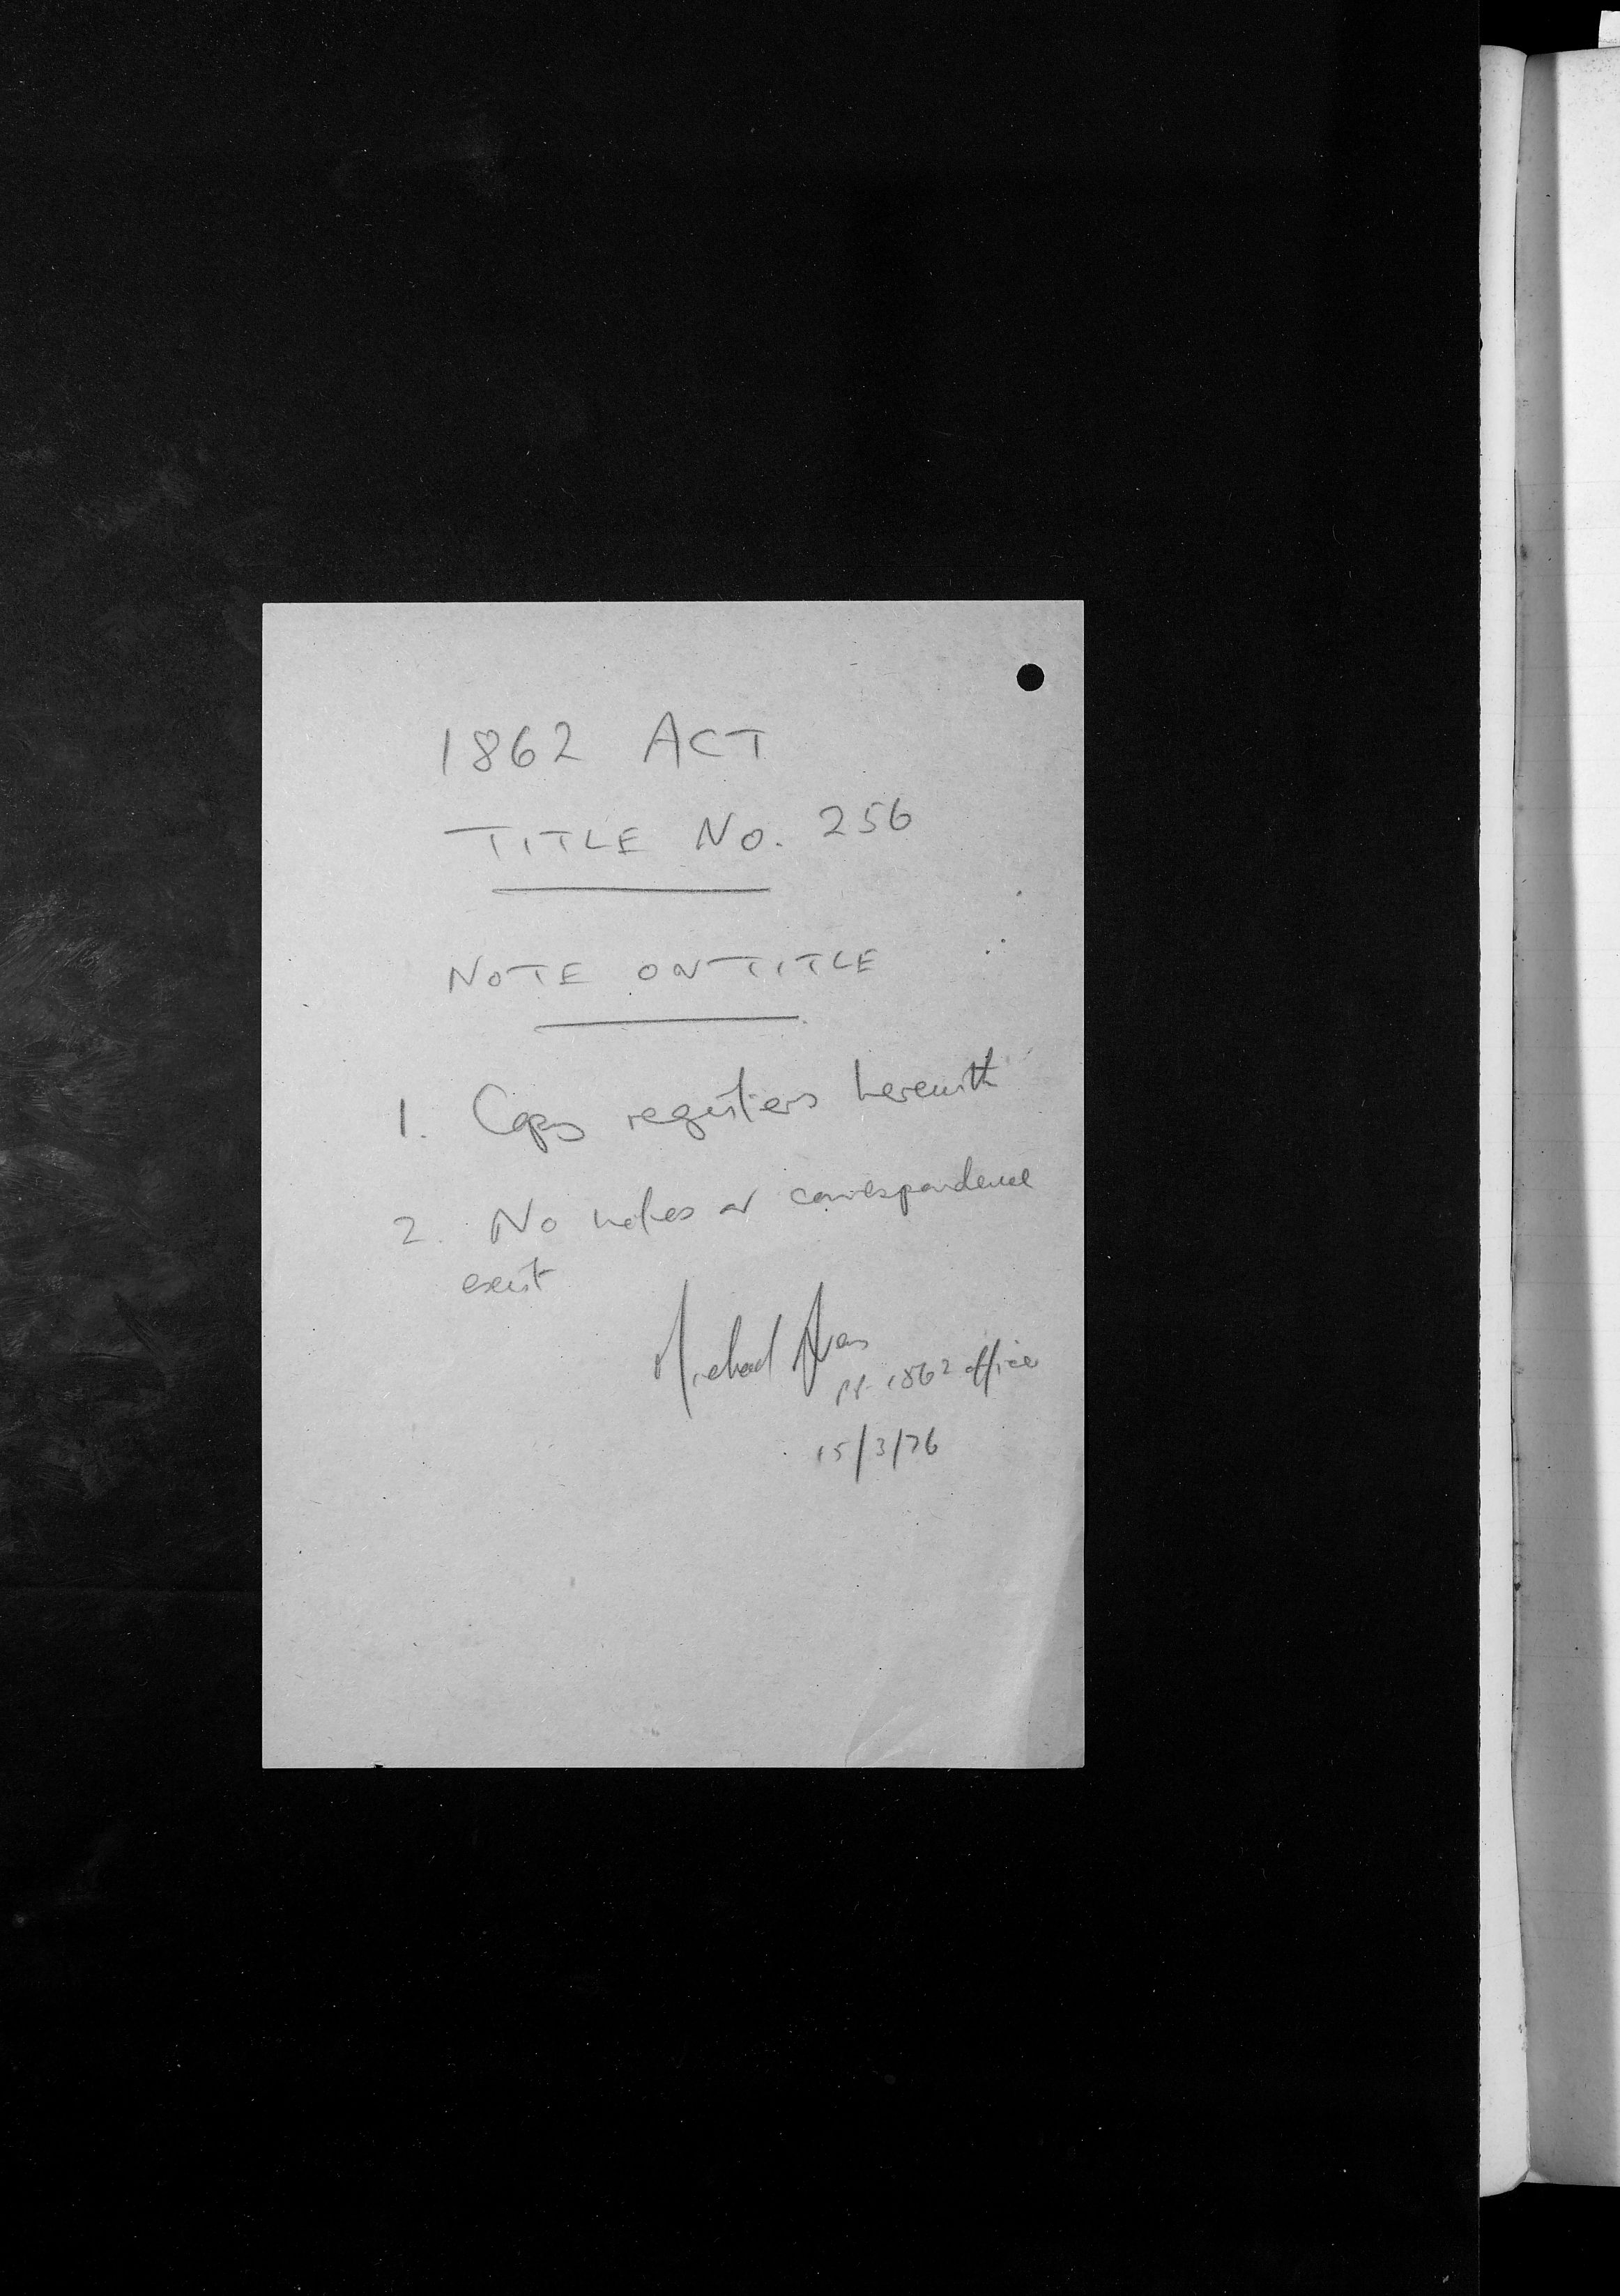 1862 ACT
TITLE No. 256
NOTE ON TITLE
1. Copy registers herewith
2. No notes or correspondence
exist
Michael
pp. 1862 office
15/3/76